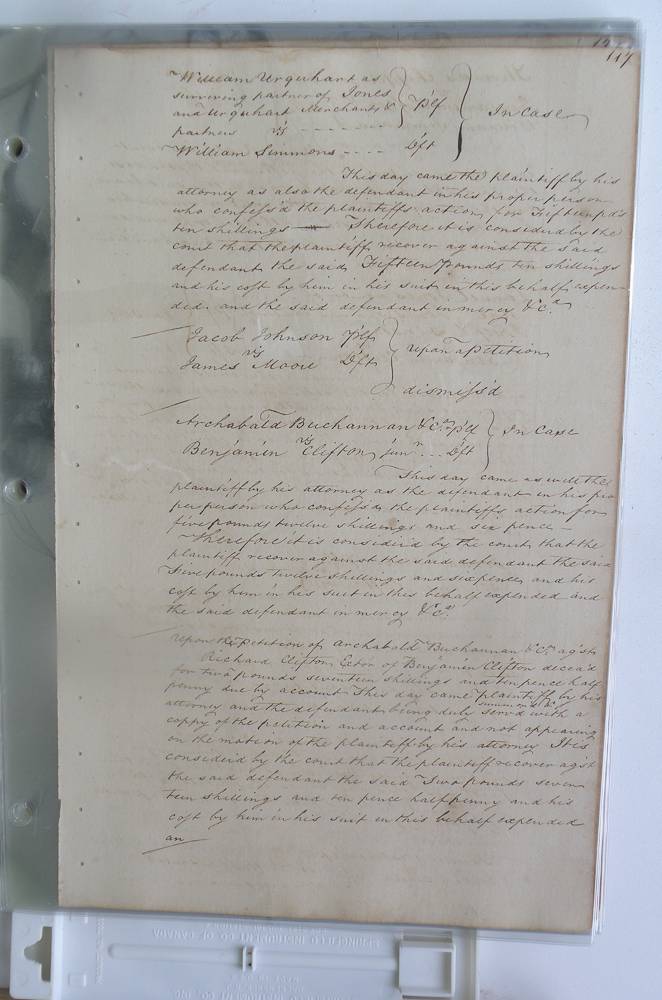 117
William Urquhart as
surviving partner of Jones
and Urquhart Merchants &
partners vs - - - - - Plf In Case
William Simmons - - - - Deft
This day came the plaintiff by his
attorney as also the defendant in his proper person
who confess'd the plaintiffs action for Fifteen pds
ten shillings Therefore it is considered by the
court that the plaintiff recover against the said
defendant the said Fifteen pounds ten shillings
and his cost by him in his suit in this behalf expen
ded and the said defendant in mercy &c.a
Jacob Johnson Plf
vs upon a Petition
James Moore Deft
dismiss'd
Archabald Buchannan &c.a Plf In Case
vs
Benjamin Clifton junr ... Deft
This day came as well the
plaintiff by his attorney as the defendant in his pro
per person who confess'd the plaintiffs action for
five pounds twelve shillings and six pence
Therefore it is consider'd by the court that the
plaintiff recover against the said defendant the said
Five pounds twelve shillings and sixpence and his
cost by him in his suit in this behalf expended and
the said defendant in mercy &c.a
upon the petition of Archabald Buchannan &c.a agst
Richard Clifton Extor of Benjamin Clifton deceas'd
for two pounds seventeen shillings and ten pence half
penny due by account This day came plaintiff by his
attorney and the defendant being duly serv'd with a
summons &
coppy of the petition and account and not appearing
on the motion of the plaintiff by his attorney It is
consider'd by the court that the plaintiff recover agst
the said defendant the said Two pounds seven
teen shillings and ten pence halfpenny and his
cost by him in his suit in this behalf expended
an
SPRINGFIELD INSTRUMENT CO OF CANADA